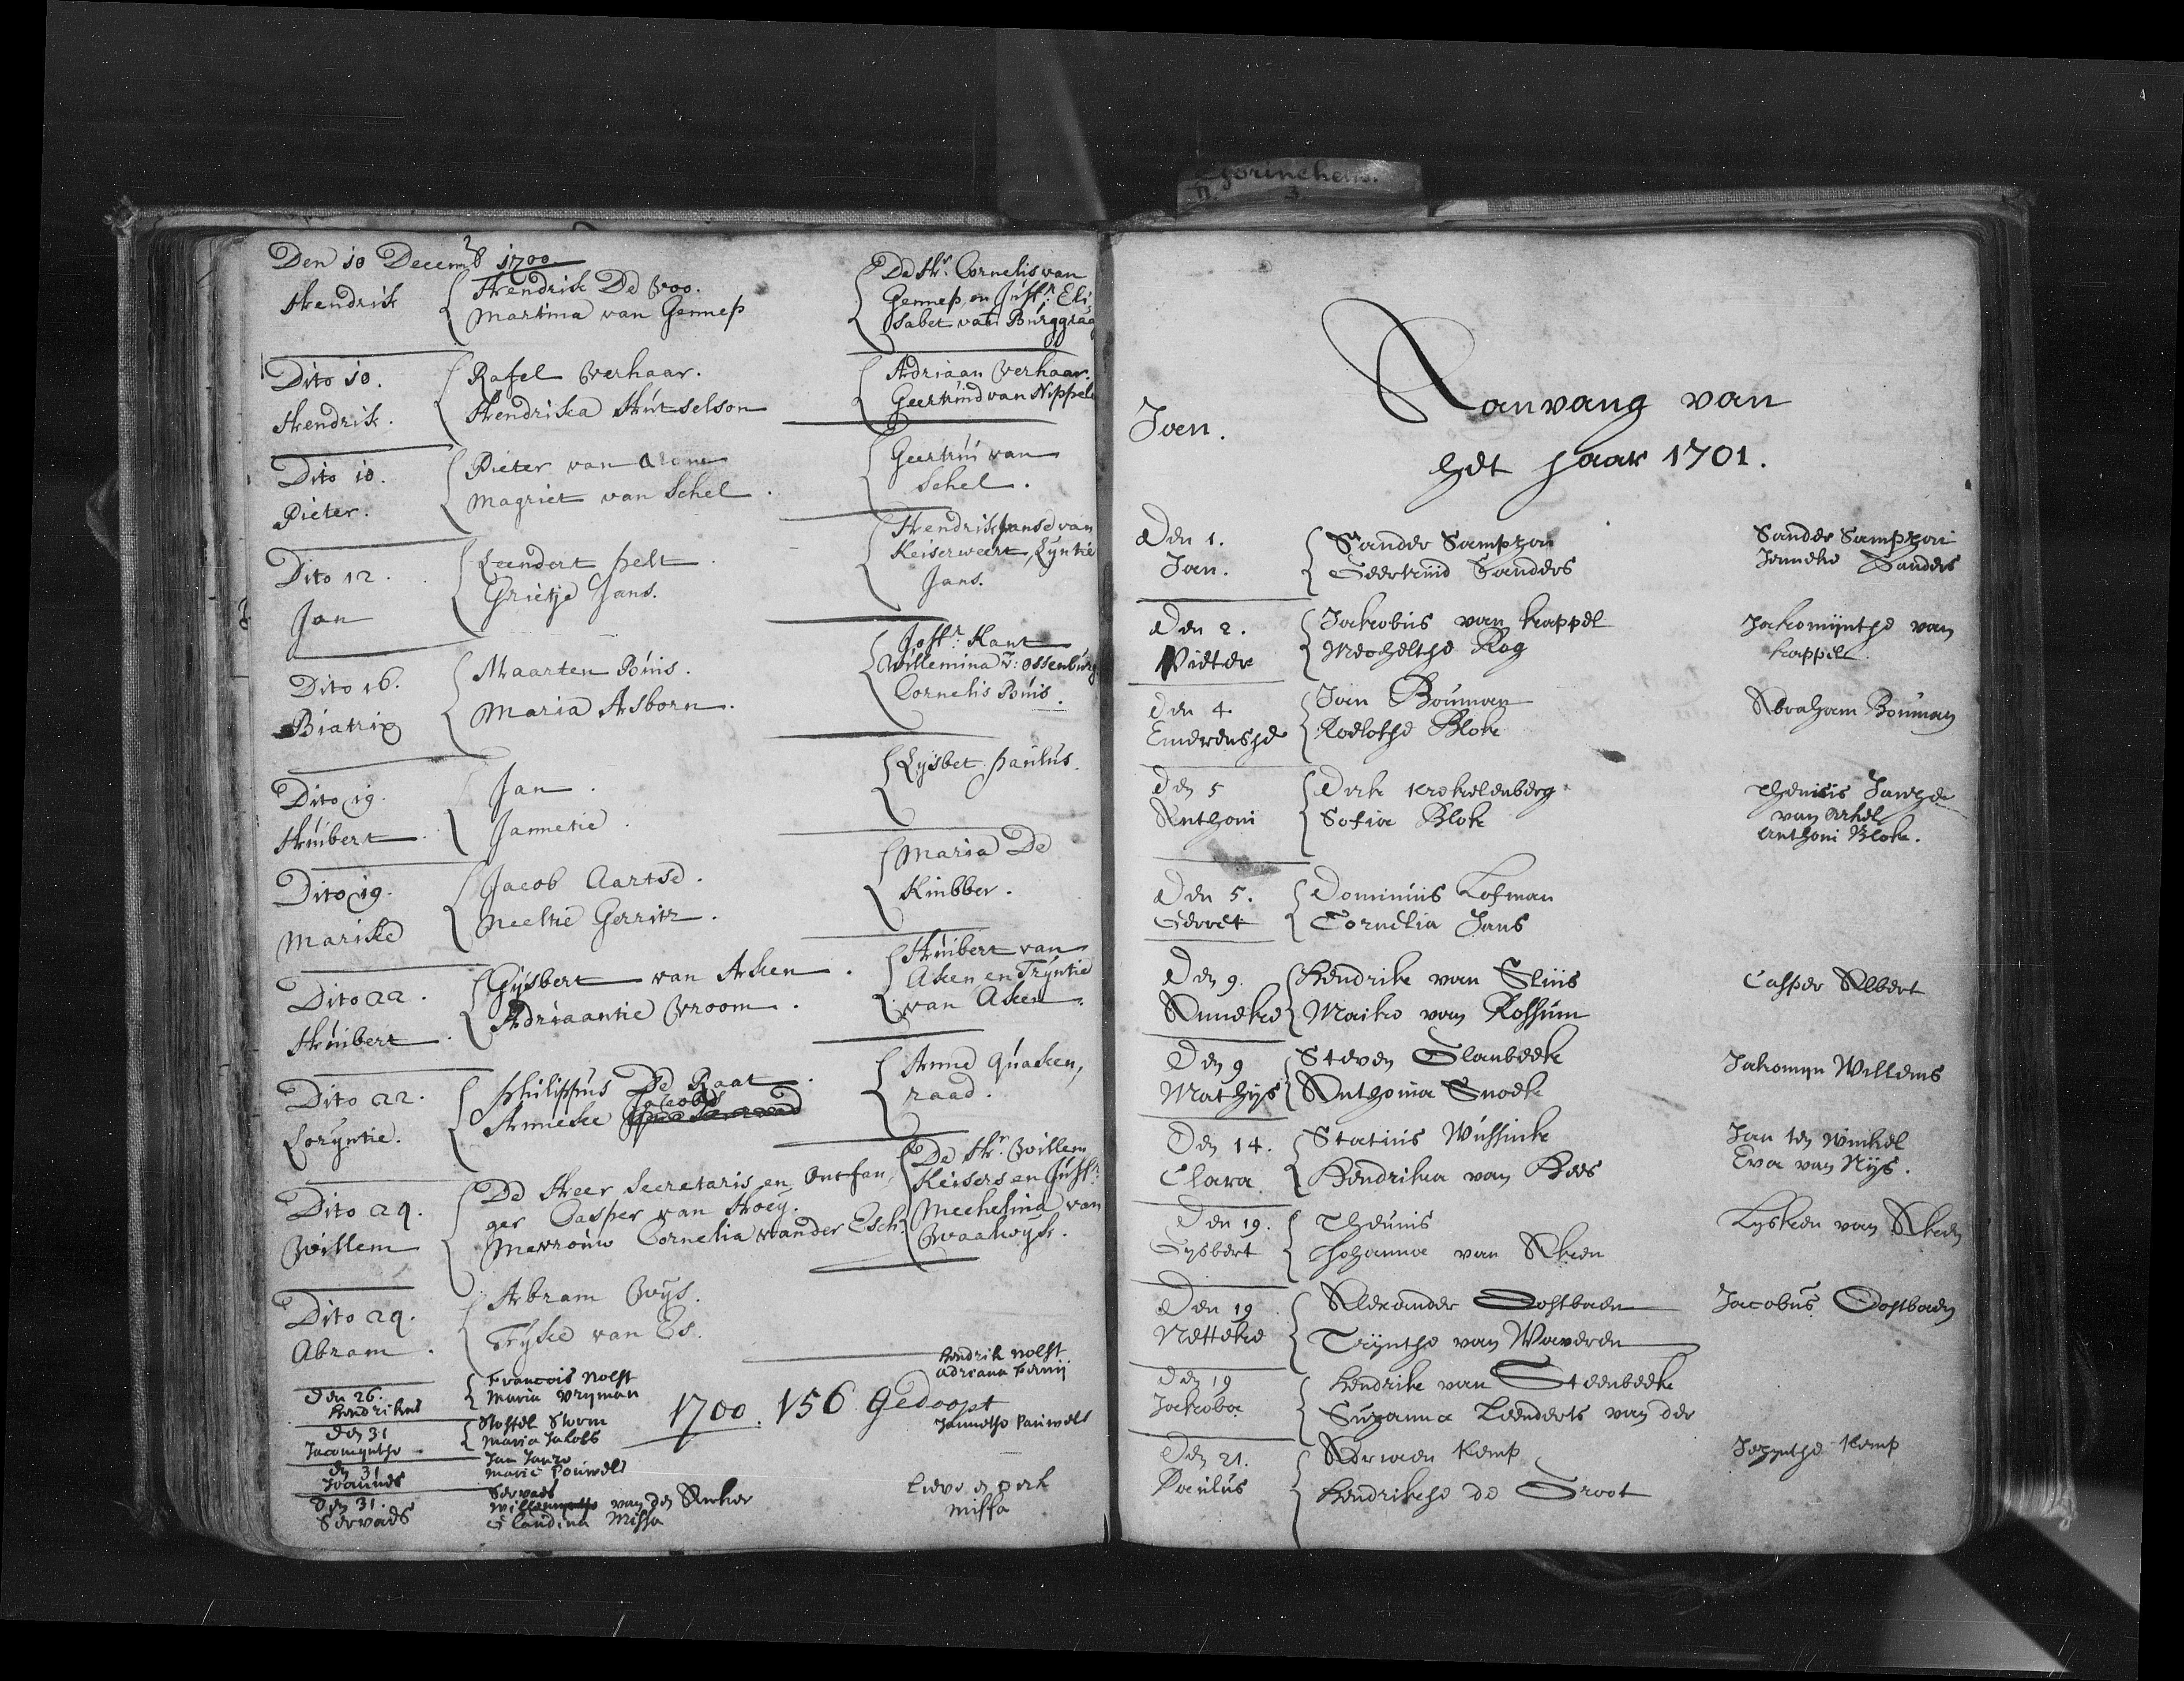 Gorinchem.
n. 3.
Den 10 Decemb 1700
Hendrik
Hendrik De Voo.
Martina van Gennep
De Hr. Cornelis van
Gennep en Juffr. Eli
sabet van Burggraa
Dito 10.
Hendrik.
Rafel Verhaar.
Hendrika Hutselson
Adriaan Verhaar.
Geertruid van Nippel
Dito 10.
Pieter.
Pieter van
Magriet van Schel.
Geertrui van
Schel.
Dito 12.
Jan
Leendert pelt
Grietje Jans.
Hendrik Janse van
Keiserweert, Lyntie
Jans.
Dito 16.
Biatrix
Maarten Buis.
Maria Asborn.
Joffr. Kant
Willemina v: Ossenburg
Cornelis Buis.
Dito 19.
Huibert
Jan.
Jannetie.
Lysbet paulus.
Dito 19.
Marike
Jacob Aartse.
Neeltie Gerritz.
Maria De
Kribber.
Dito 22.
Huibert.
Gysbert van Aken.
Adriaantie Vroom.
Huibert van
Aken en Tryntie
van Aken.
Dito 22.
Coryntie.
philippus De Raat.
Jacobs
Anneke
Anne quaken,
raad.
Dito 29.
Willem
De Heer Secretaris en Ontfan,
ger Casper van Hoey.
Mevrouw Cornelia vander Esch.
De Hr. Willem
Keisers en Juffr.
Mechelina van
Waalwyk.
Dito 29.
Abram.
Abram Buys.
Fryke van Es.
Den 26.
Hendrikus
Francois nolst
Maria Vryman
Hendrik nolst
Adriana
Den 31
Jacomynthe
Stoffel Storm
Maria Jakobs
1700. 156 Gedoopt
Jannethe Pauwels
Den 31
Joannes
Jan Janze
Marie Pouwels
Den 31.
Servaes
Servaes
van den Anker
Claudina Missa
Missa
Aanvang van
het Jaar 1701.
Jan.
Den 1.
Jan.
Sander Sampson
Geertruid Sanders
Sander Sampson
Jenneke Sanders
Den 2.
Pieter
Jakobus van kappel
Mechelthe Kog
Jakomijnthe van
kappel.
Den 4.
Emerenshe
Jan Bouman
Roelothe Blok
Abraham Bouman
Den 5
Anthoni
Dirk krekelenberg
Sofia Blok
Theunis Janze
van Arkel
Anthoni Blok.
Den 5.
Gerret
Dominuis Kofman
Cornelia Jans
Den 9.
Anneke
Hendrik van Sluis
Maike van Rossum
Casper Albert
Den 9
Mathys
Steven Slanbeek
Anthonia Snoek
Jakomyn Willems
Den 14.
Clara
Statius Wussink
Hendrika van Hees
Jan ten Winkel
Eva van Nys.
Den 19.
Gysbert
Theunis
Johanna van Aken
Lysken van Aken
Den 19
Netteke
Alexander Oostbaen
Trynthe van Waveren
Jacobus Oostbaen
Den 19
Jakoba
Hendrik van Steenbeek
Suzanna Leenderts van der
Den 21.
Paulus
Adriaen Kemp
Hendrikche de Groot
Jozynthe Kemp